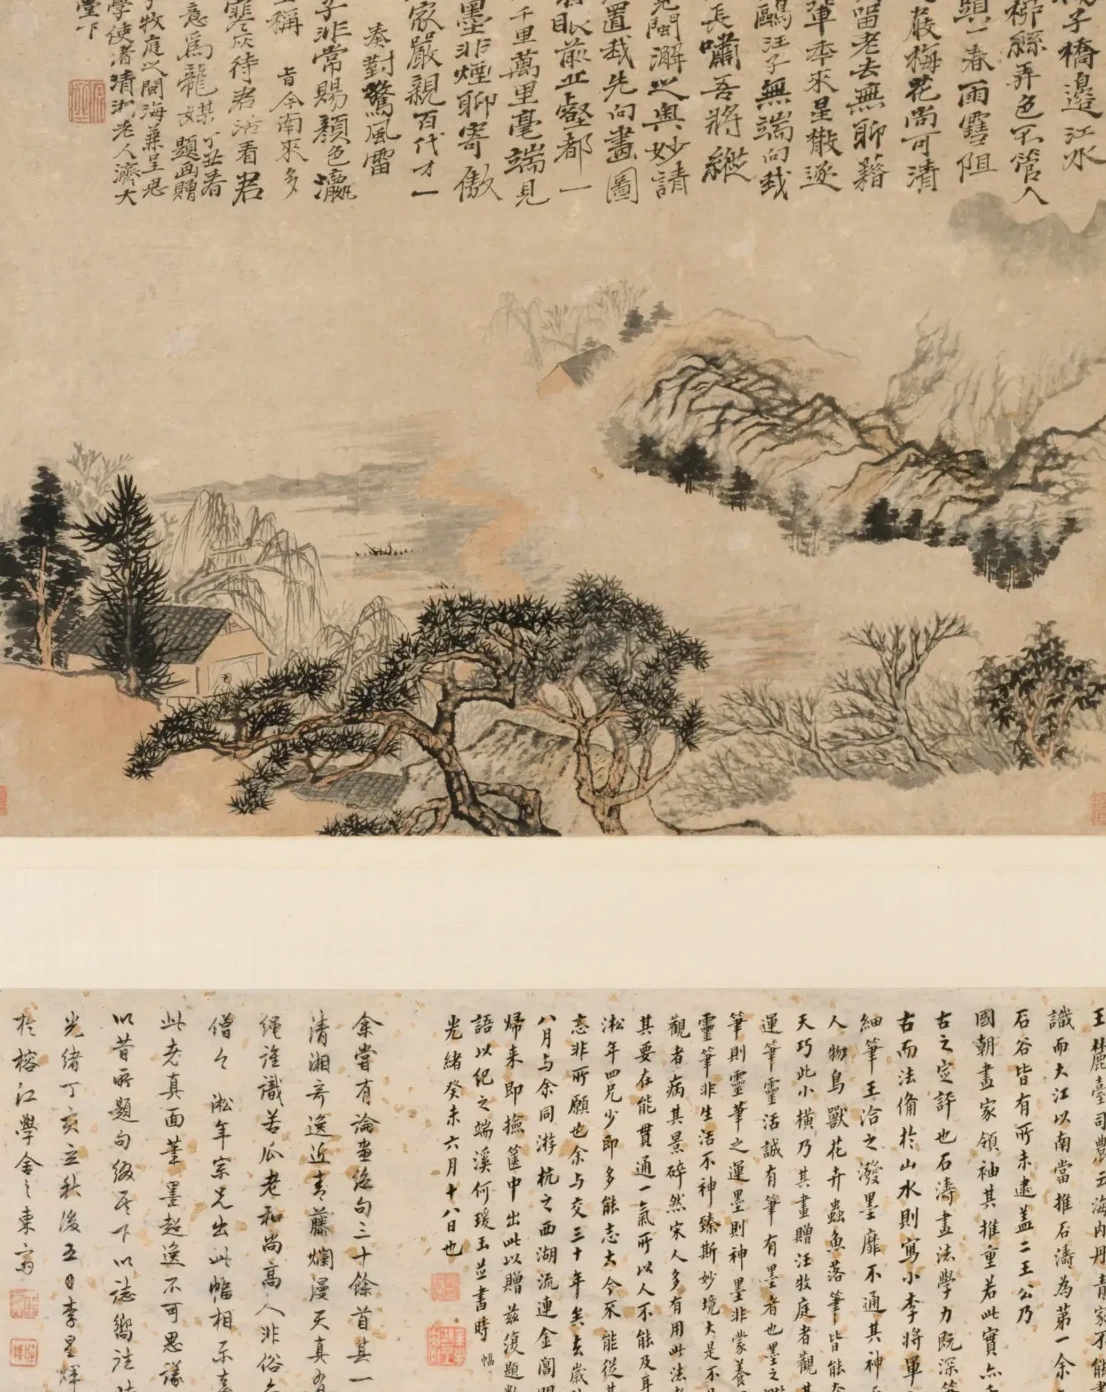 楊子橋邊江水
柳絲弄色不管人
頭一春雨雪阻
嚴梅花尚可清
留老去無聊藉
軍本來星散遂
鷗汪子無端向我
長嘯吾將縱
閩澥之輿妙請
置我先向畫圖
眼前丘壑都一
千里萬里毫端見
墨非煙聊寄傲
家嚴親百代才一
奏對驚風雷
子非常賜顏色瀛
稱旨今南來多
寒灰待君活看君
意為龍媒丁丑春題畫贈
牧庭之閩海兼呈
學使者清湘老人濟大
堂下
王麓臺司農云海內丹青家不能
識而大江以南當推石濤為第一余
石谷皆有所未逮蓋二王公乃
國朝畫家領袖其推重若此實
古之定評也石濤畫法學力既深
古而法備於山水則寫小李將軍
細筆王洽之潑墨靡不通其神
人物鳥獸花卉蟲魚落筆皆能
天巧此小橫乃其畫贈汪牧庭者觀其
運筆靈活誠有筆有墨者也墨之
筆則靈筆之運墨則神墨非蒙養不
靈筆非生活不神臻斯妙境大是不
觀者病其景碎然宋人多有用此法
其要在能貫通一氣所以人不能及耳
淞年四兄少即多能志古今來能從其
志非所願也余與交三十年矣去歲
八月與余同游杭之西湖流連金閶
歸來即撿篋中出此以贈茲復題
語以紀之端溪何瑗玉並書時
光緒癸未六月十八日也
余嘗有論畫絕句三十餘首其一
清湘奇逸近青藤爛漫天真
繩誰識苦瓜老和尚高人非俗
僧今淞年宗兄出此幅相示
此老真面筆墨超逸不可思議
以昔所題句綴於下以誌嚮往
光緒丁亥立秋後五日李星煇
於榕江學舍之東齋